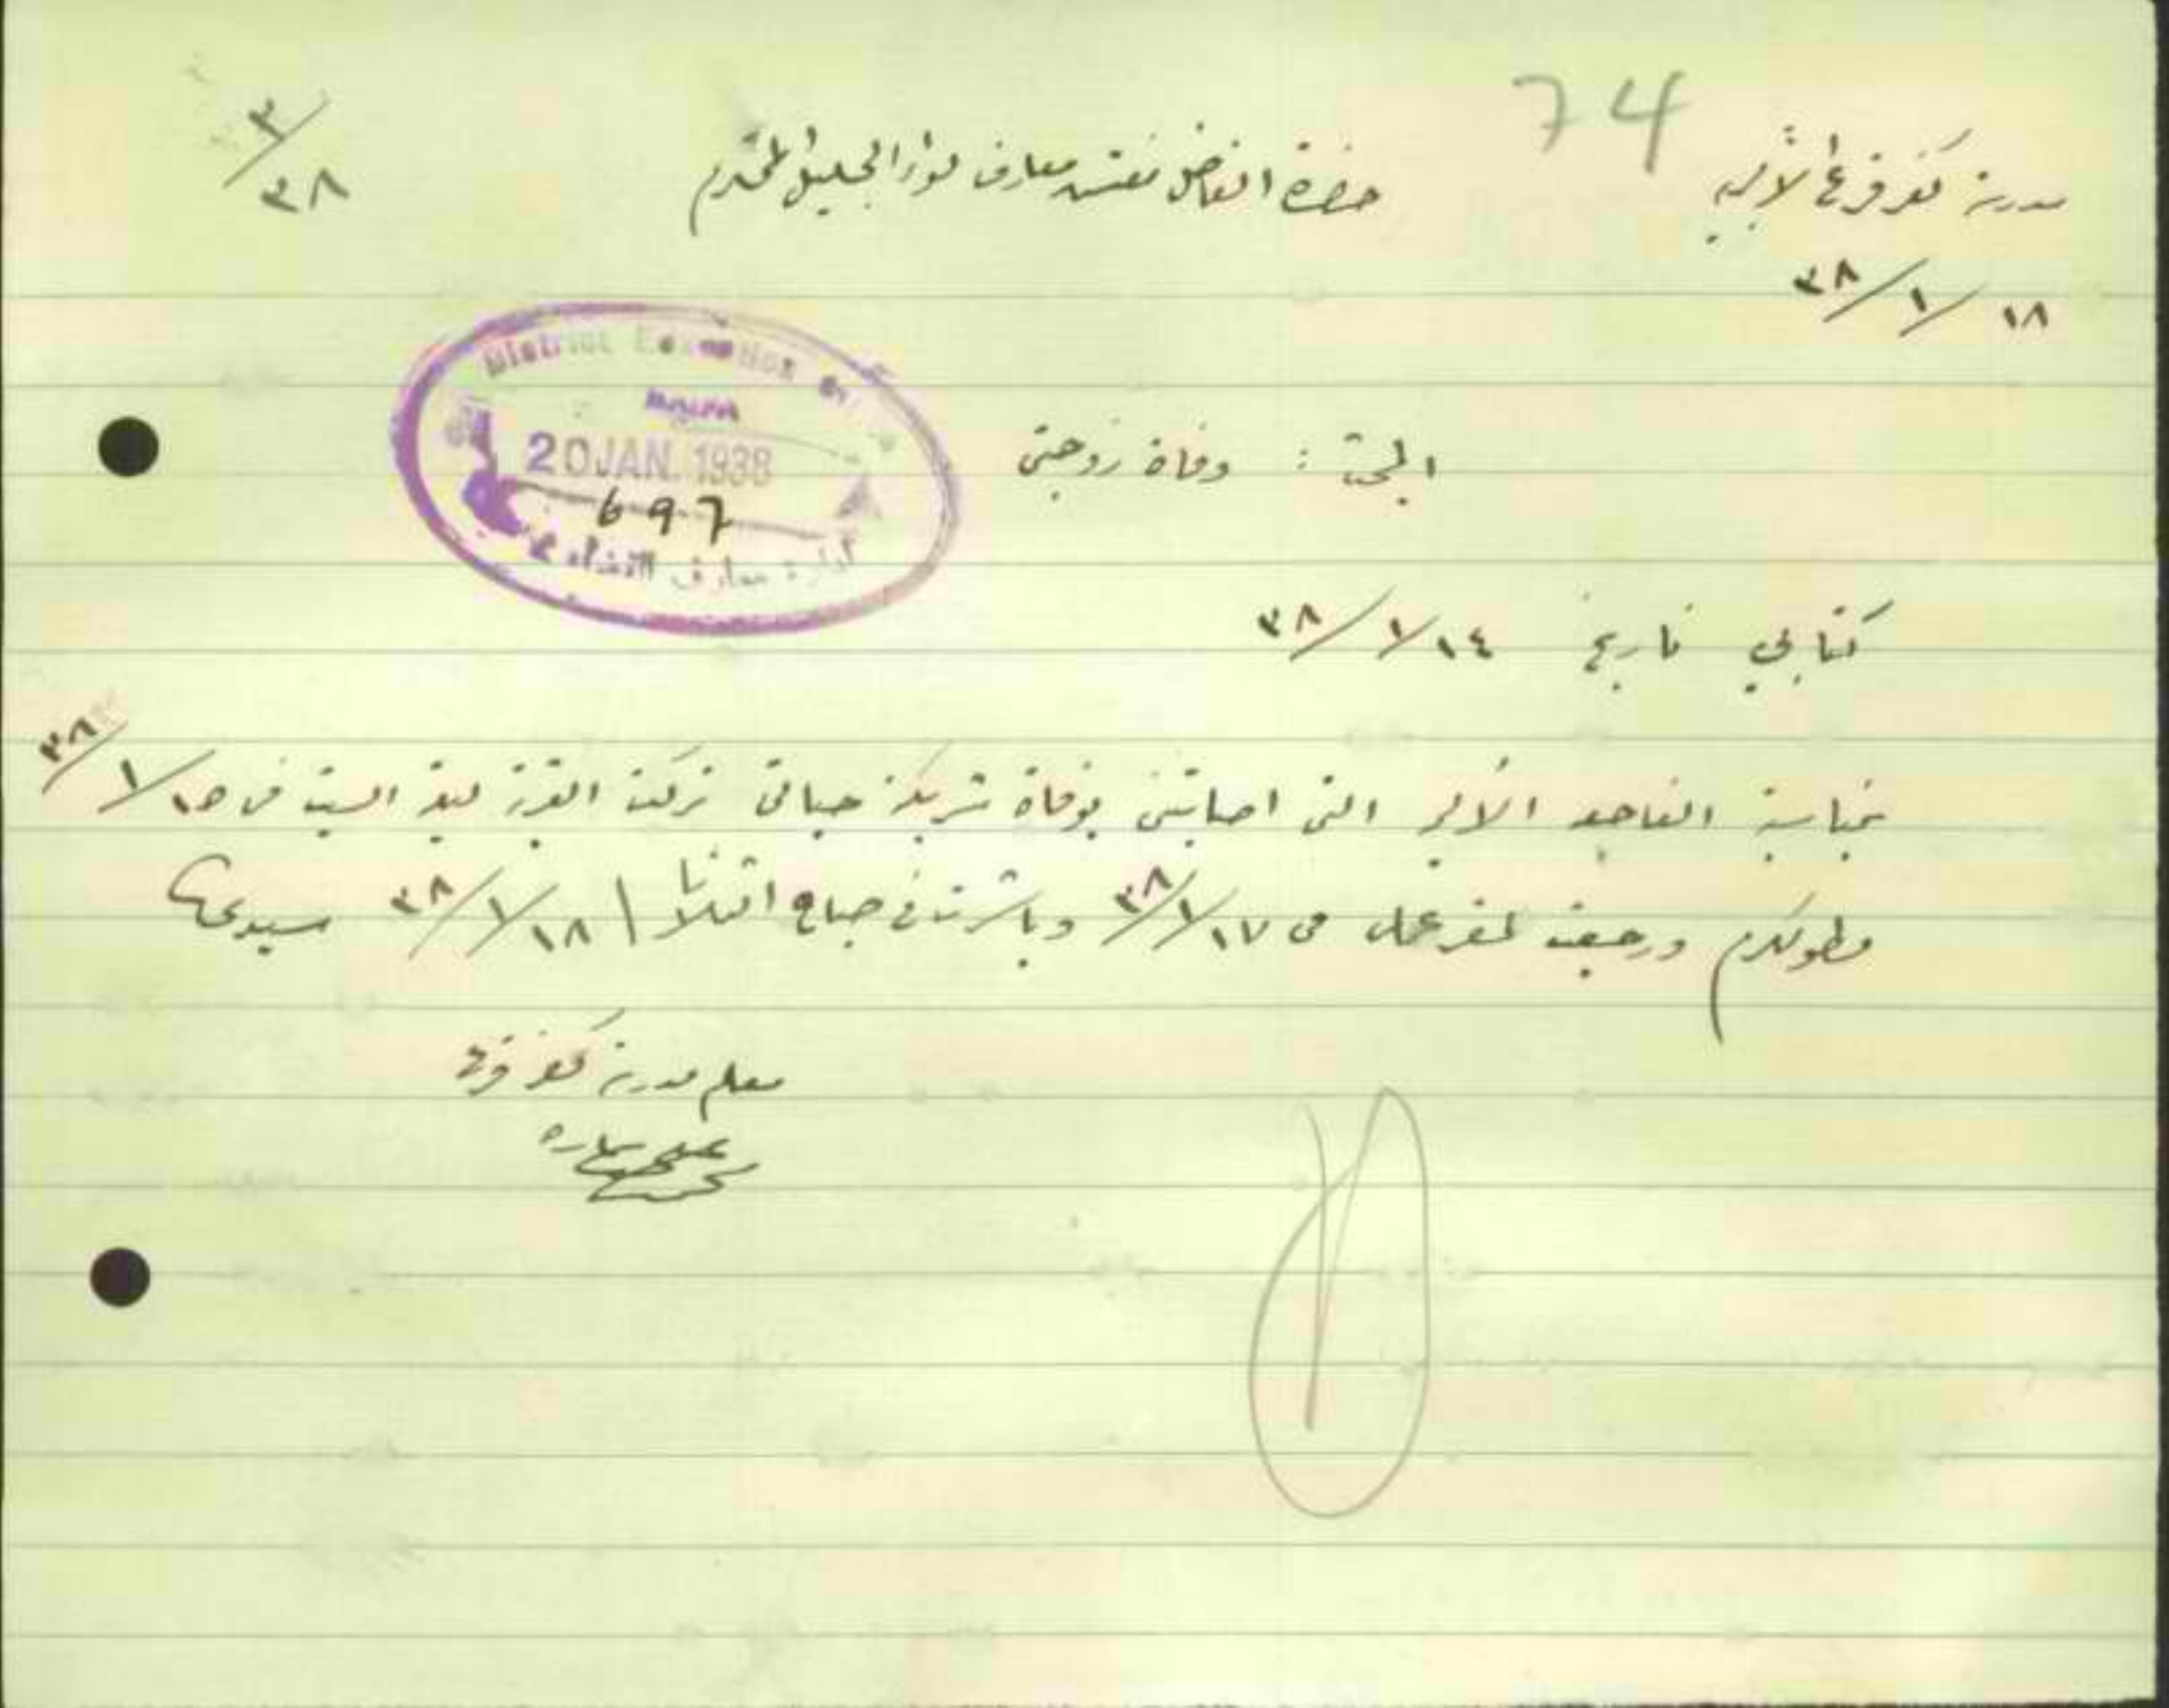 74
مدرسة كفر قرع الأميرية
١٨/١/٣٨
حضرة الفاضل مفتش معارف لواء الجليل المحترم
٣/٣٨
District Education
20 JAN. 1938
697
ادارة معارف القضاء
البحث : وفاة زوجتي
كتابي تاريخ ١٤/١/٣٨
بمناسبة الفاجعة الأليمة التي اصابتني بوفاة شريكة حياتي تركت القرية ليلة السبت في ١٥/١/٣٨
ورجعت لمقر عملي في ١٧/١/٣٨ وباشرت في صباح الثلاثا ١٨/١/٣٨ سيدي
معلم مدرسة كفر قرع